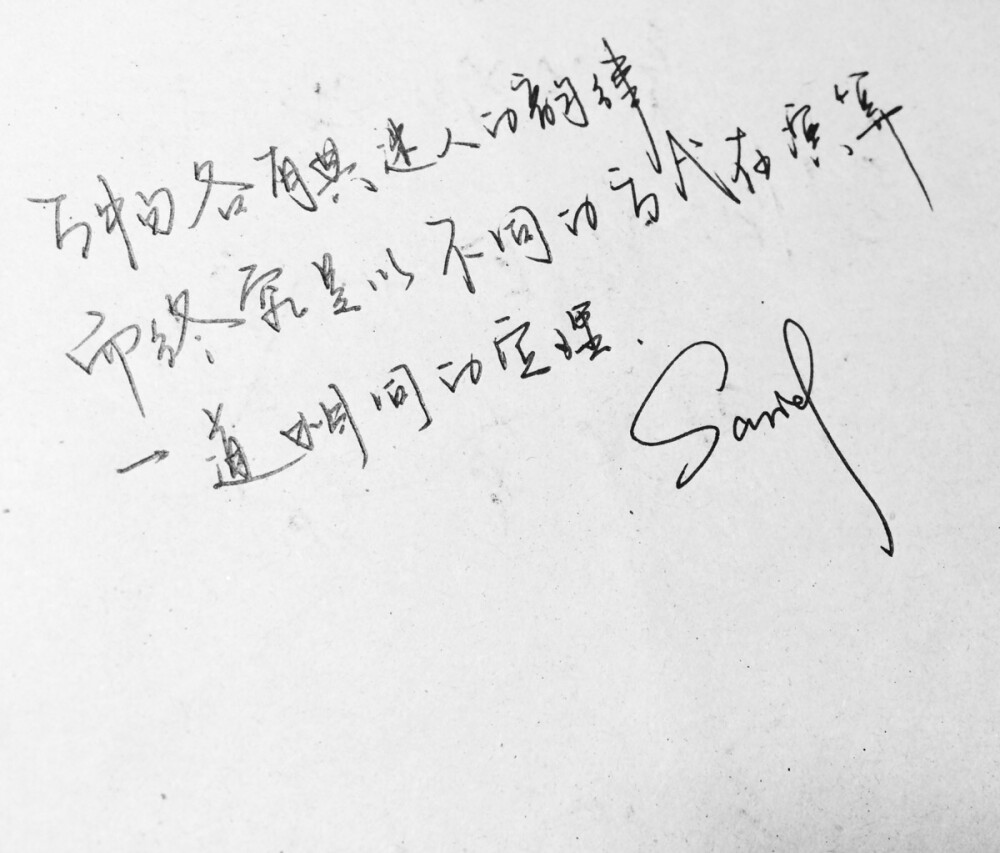 万物各有其迷人的韵律
而终究是以不同的方式在演算
一道相同的定理.